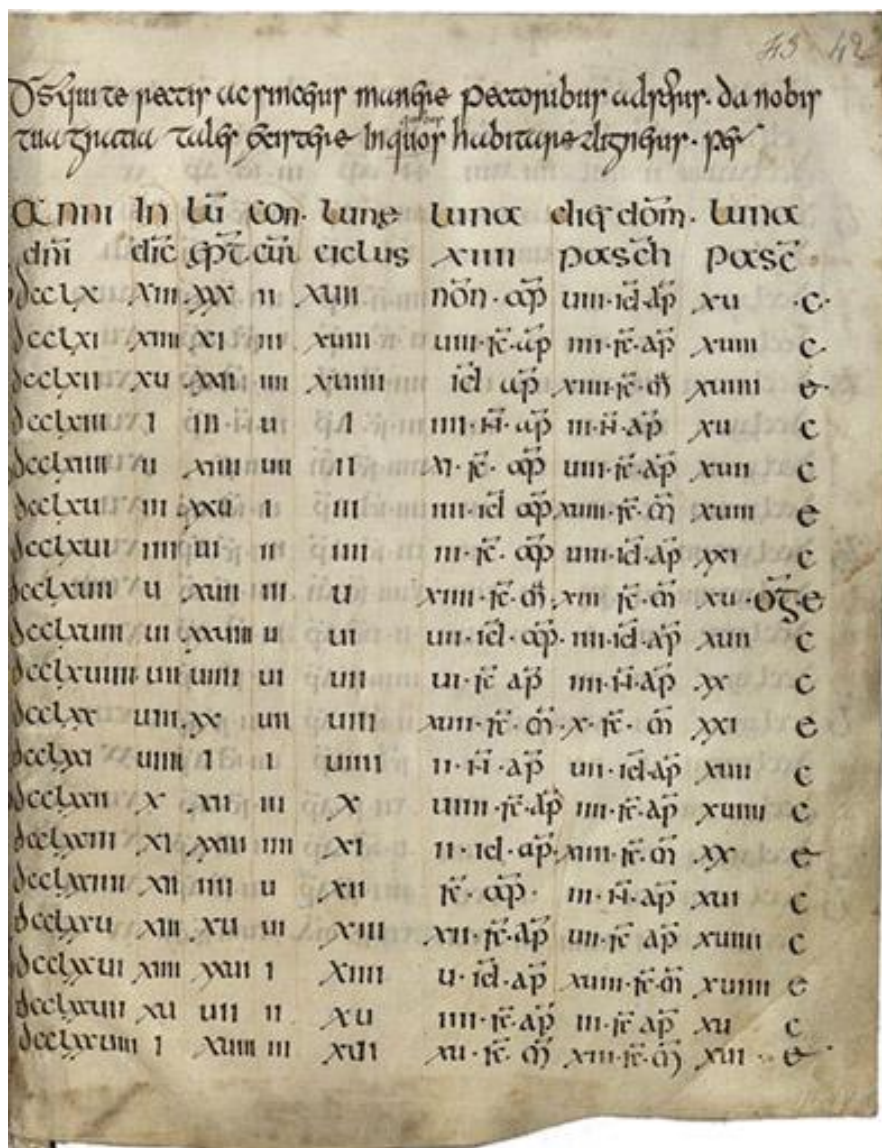 D̄s qui te rectis ac sinceris manere pectoribus adseris· da nobis
tua gratia tales existere in quos habitare digneris· per
Anni In Lū con· lune luna dies dom̄· luna
dn̄i dic̄ ep̄t cū ciclus xiiii pasch pasc̄
dcclx xiii xxx ii xuii nōn·ap̄ uiii·id·ap̄ xu ·c·
dcclxi xiiii xi iii xuiii uiii·k̄·ap̄ iiii·k̄·ap̄ xuiii c·
dcclxii xu xxii iiii xuiiii id ap̄ xiiii·k̄·m̄ xuiiii e·
dcclxiii i iii u i iiii·n̄·ap̄ iii·n̄·ap̄ xu c
dcclxiiii ii xiiii uii ii xi·k̄·ap̄ uiii·k̄·ap̄ xuii c
dcclxu iii xxu i iii iiii·id ap̄ xuiii·k̄·m̄ xuiii e
dcclxui iiii ui ii iiii iii·k̄·ap̄ uiii·id·ap̄ xxi c
dcclxuii u xuii iii u xiiii·k̄·m̄ xiii k̄·m̄ xu ·oḡe
dcclxuiii ui xxuiii u ui uii·id·ap̄· iiii·id·ap̄ xuii c
dcclxuiiii uii uiiii ui uii ui·k̄ ap̄ iiii·n̄·ap̄ xx c
dcclxx uiii xx uii uiii xuii·k̄·m̄·x·k̄·m̄ xxi e
dcclxxi uiiii i i uiiii ii·n̄·ap̄ uii·id·ap̄ xuii c
dcclxxii x xii iii x uiiii·k̄·ap̄ iiii·k̄·ap̄ xuiiii c
dcclxxiii xi xxiii iiii xi ii·id·ap̄ xiiii·k̄·m̄ xx e
dcclxxiiii xii iiii u xii k̄·ap̄· iii·n̄·ap̄ xui c
dcclxxu xiii xu ui xiii xii·k̄·ap̄ uii·k̄ ap̄ xuiiii c
dcclxxui xiiii xxui i xiiii u·id·ap̄ xuiii·k̄·m̄ xuiiii e
dcclxxuii xu uii ii xu iiii·k̄·ap̄ iii·k̄ ap̄ xu c
dcclxxuiii i xuiii iii xui xu·k̄·m̄ xiii·k̄·m̄ xui e